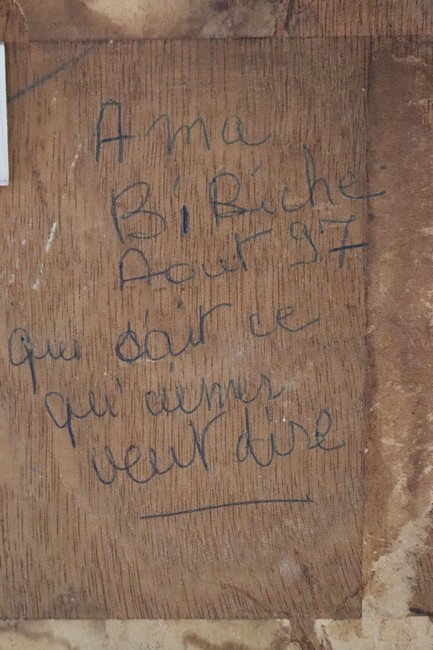 A ma
BiBiche
Aout 97
qui sait ce
qu'aimer
veut dire